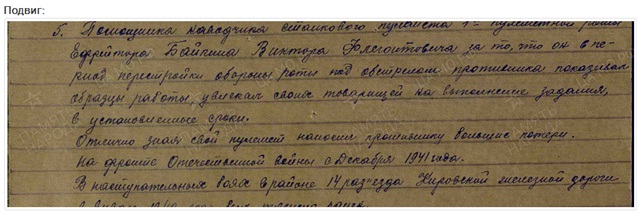 Подвиг:
5. Помощника наводчика станкового пулемета 1й пулеметной роты
Ефрейтора Байкина Виктора Флегонтовича за то, что он в пе-
риод перестройки обороны роты под обстрелом противника показывал
образцы работы, увлекал своих товарищей на выполнение задания,
в установленные сроки.
Отлично зная свой пулемет наносил противнику большие потери.
На фронте Отечественной войны с Декабря 1941 года.
В наступательных боях в районе 14 разъезда Кировской железной дороги